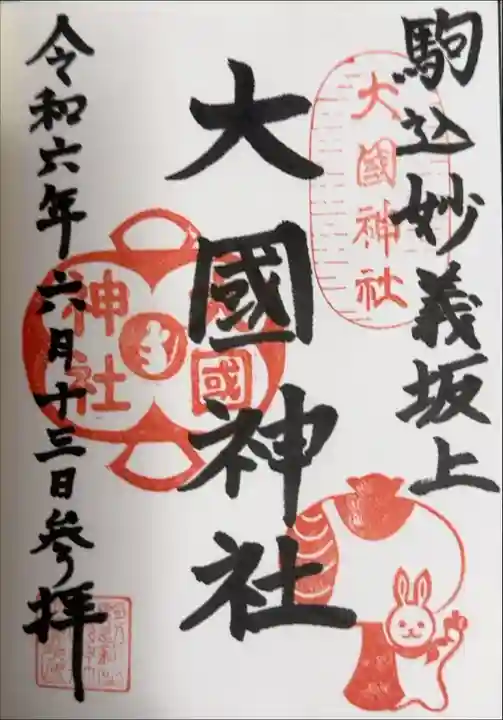 駒込妙義坂上
大國神社
大國神社
大國神社
令和六年六月十三日参拝